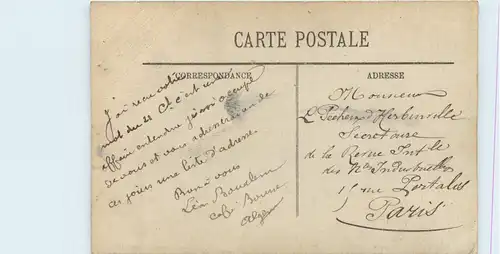 CARTE POSTALE
CORRESPONDANCE
J'ai reçu votre
mot du 21 Ct. c'est une
affaire entendue je vais m'occuper
de vous et vous adresserai un de
ces jours une liste d'adresse.
Bien à vous
Léon
café Bourse
Alger
ADRESSE
Monsieur
L. d'Herbinville
Secrétaire
de la Revue Intle
des Industrielles
15 rue
Paris